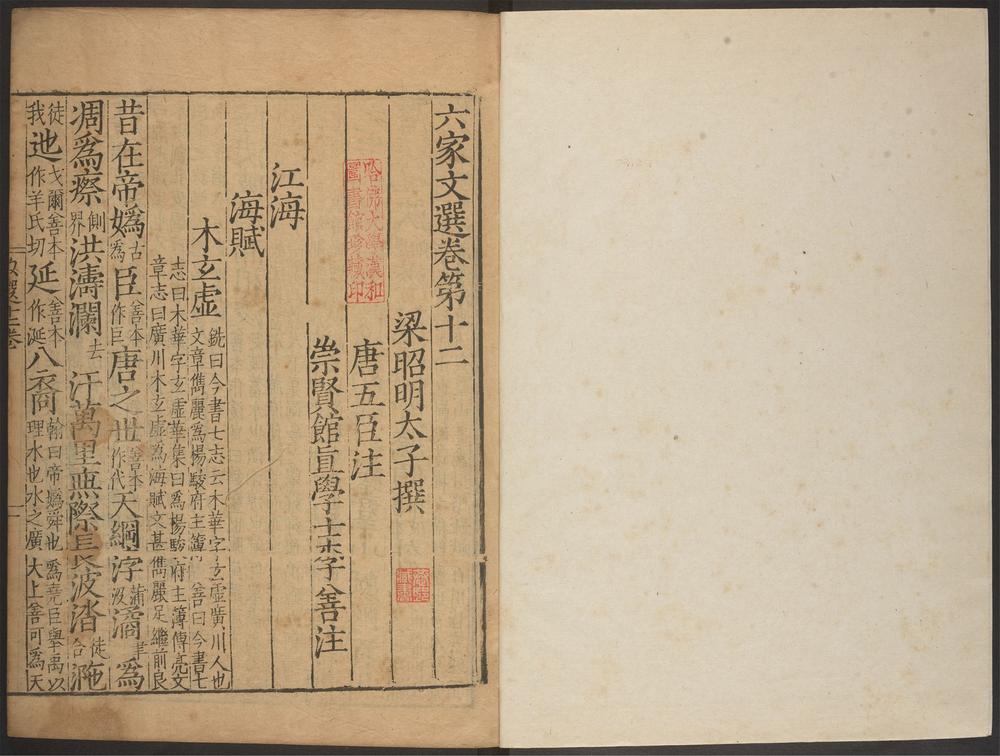 六家文選卷第十二
梁昭明太子撰
唐五臣注
崇賢館直學士李善注
哈佛大學漢和圖書館珍藏印
江海
海賦
木玄虛
銑曰今書七志云木華字玄虛廣川人也
文章儁麗爲楊駿府主簿善曰今書七
志曰木華字玄虛華集曰爲楊駿府主簿傅亮文
章志曰廣川木玄虛爲海賦文甚儁麗足繼前良
昔在帝嬀古爲臣善本作巨唐之世善本作代天綱浡蒲沒潏聿爲
凋爲瘵側界洪濤瀾去汗萬里無際長波涾徒合㳠
徒我迆弋爾善本作羊氏切延善本作涎八裔翰曰帝嬀舜也爲堯臣舉禹以理水也水之廣大上善可爲天